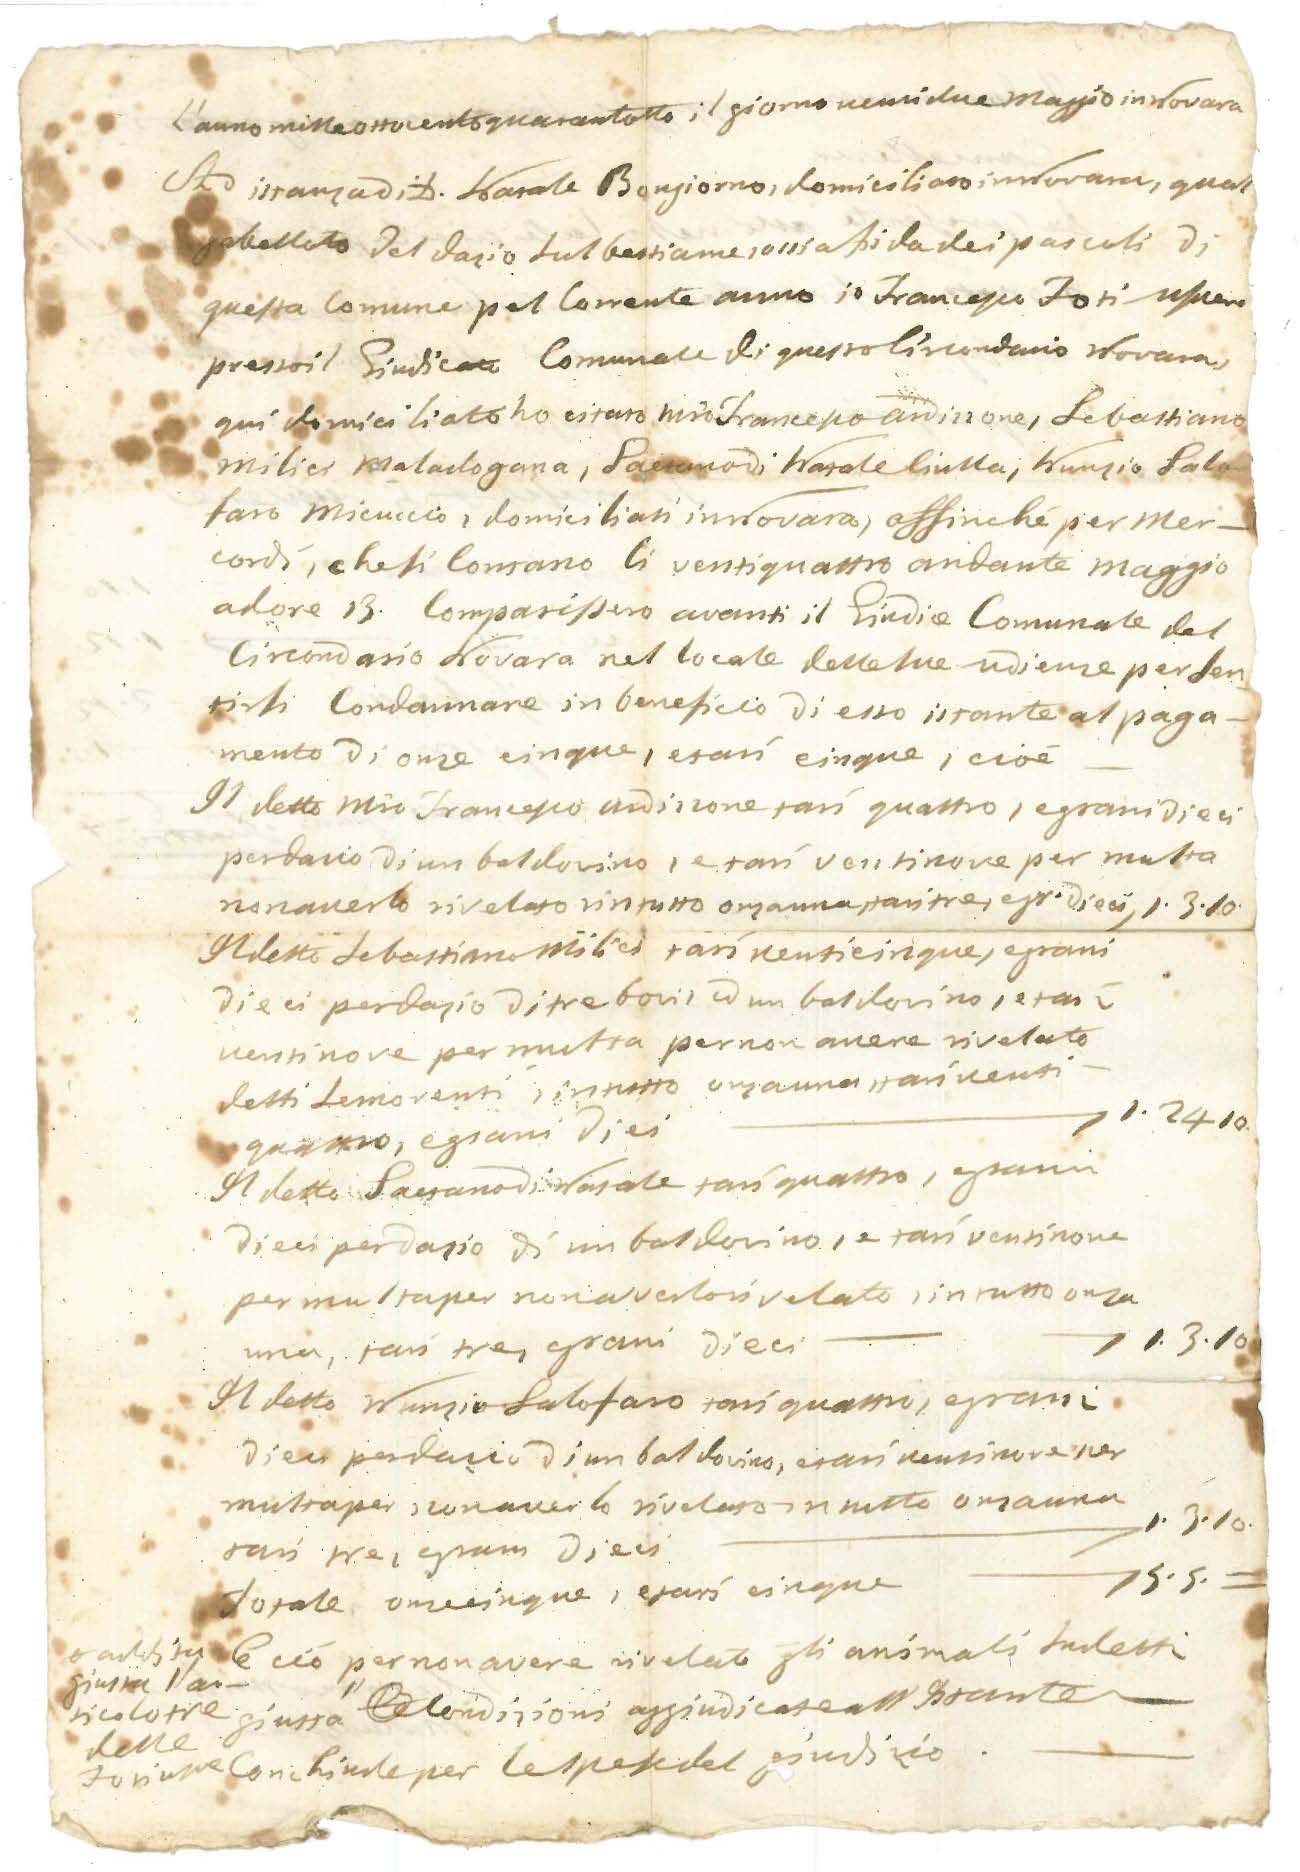 L'anno mille ottocento quarantotto, il giorno ventidue Maggio in Novara
Ad istanza di D. Natale Bongiorno, domiciliato in Novara, qual
gabelloto del dazio sul bestiame, ossia fida dei pascoli di
questa Comune pel Corrente anno io Francesco Tosi usciere
presso il Giudicato Comunale di questo Circondario Novara,
qui domiciliato ho citato Mro Francesco Ardizzone, Sebastiano
Milici Maladogana, Gaetano di Natale Ciulla, Nunzio Salo-
faro Micuccio, domiciliati in Novara, affinché per Mer-
cordì, che si Contano li ventiquattro andante Maggio
ad ore 13. Comparissero avanti il Giudice Comunale del
Circondario Novara nel locale delle sue udienze per sen-
tirsi Condannare in beneficio di esso istante al paga-
mento di onze cinque, e tarì cinque, cioè —
Il detto Mro Francesco Ardizzone tarì quattro, e grani dieci
per dazio di un baldovino, e tarì ventinove per multa
non averlo rivelato in tutto onza una, tarì tre, e gr. dieci, 1. 3. 10.
Il detto Sebastiano Milici tarì venticinque, e grani
dieci per dazio di tre bovi, ed un baldovino, e tarì
ventinove per multa per non avere rivelato
detti semoventi, in tutto onza una tarì venti-
quattro, e grani dieci — 1. 24 10.
Il detto Gaetano di Natale tarì quattro, e grani
dieci per dazio di un baldovino, e tarì ventinove
per multa per non averlo rivelato, in tutto onza
una, tarì tre, e grani dieci — 1. 3. 10
Il detto Nunzio Salofaro tarì quattro, e grani
dieci per dazio di un baldovino, e tarì ventinove per
multa per non averlo rivelato in tutto onza una
tarì tre, e grani dieci — 1. 3. 10.
Totale onze cinque, e tarì cinque — 5. 5. =
E ciò per non avere rivelato gli animali sudetti
giusta le Condizioni aggiudicate all'Istante —
giusta l'ar-
ticolo tre
delle
Conchiude per le spese del giudizio. —